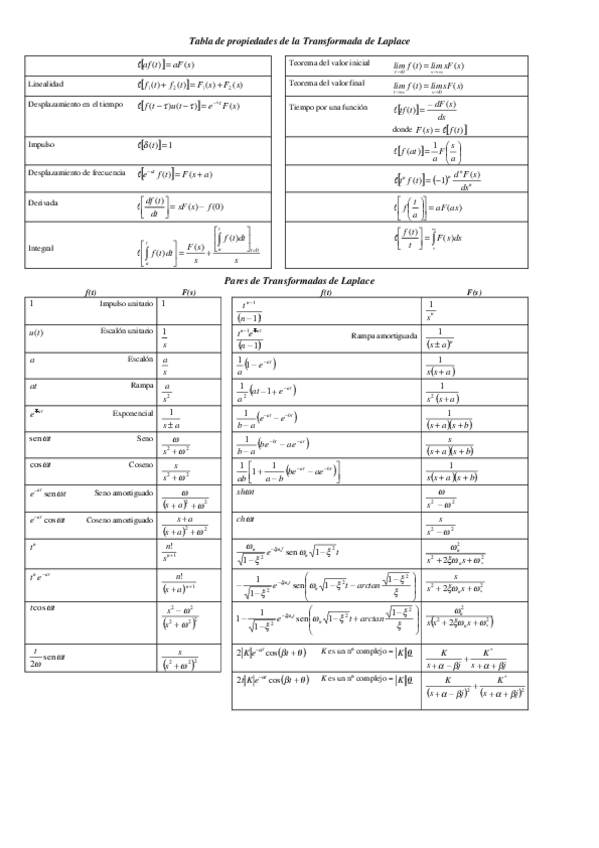 Tabla de propiedades de la Transformada de Laplace
ℓ[af(t)] = aF(s)
Linealidad ℓ[f₁(t) + f₂(t)] = F₁(s) + F₂(s)
Desplazamiento en el tiempo ℓ[f(t − τ)u(t − τ)] = e^(−τs) F(s)
Impulso ℓ[δ(t)] = 1
Desplazamiento de frecuencia ℓ[e^(−at) f(t)] = F(s + a)
Derivada ℓ[df(t)/dt] = sF(s) − f(0)
Integral
Teorema del valor inicial lim f(t) = lim sF(s)
t→0 s→∞
Teorema del valor final lim f(t) = lim sF(s)
t→∞ s→0
Tiempo por una función ℓ[tf(t)] = −dF(s)/ds
donde F(s) = ℓ[f(t)]
ℓ[f(at)] = 1/a F(s/a)
ℓ[tⁿ f(t)] = (−1)ⁿ dⁿF(s)/dsⁿ
ℓ[f(t/a)] = aF(as)
ℓ[f(t)/t] = ∫F(s)ds
Pares de Transformadas de Laplace
f(t) F(s)
1 Impulso unitario 1
u(t) Escalón unitario 1/s
a Escalón a/s
at Rampa a/s²
Exponencial 1/(s ± a)
sen ωt Seno ω/(s² + ω²)
cos ωt Coseno s/(s² + ω²)
e^(−at) sen ωt Seno amortiguado ω/((s + a)² + ω²)
e^(−at) cos ωt Coseno amortiguado (s + a)/((s + a)² + ω²)
tⁿ n!/s^(n+1)
tⁿ e^(−at) n!/(s + a)^(n+1)
t cos ωt (s² − ω²)/(s² + ω²)²
t/2ω sen ωt s/(s² + ω²)²
f(t) F(s)
t^(n−1)/(n − 1) 1/sⁿ
Rampa amortiguada 1/(s ± a)ⁿ
1/a (1 − e^(−at)) 1/(s(s + a))
1/a² (at − 1 + e^(−at)) 1/(s²(s + a))
1/(b − a) (e^(−at) − e^(−bt)) 1/((s + a)(s + b))
1/(b − a) (be^(−bt) − ae^(−at)) s/((s + a)(s + b))
1/ab [1 + 1/(a − b) (be^(−at) − ae^(−bt))] 1/(s(s + a)(s + b))
sh ωt ω/(s² − ω²)
ch ωt s/(s² − ω²)
ωₙ/√(1 − ξ²) e^(−ξωₙt) sen ωₙ√(1 − ξ²) t ωₙ²/(s² + 2ξωₙs + ωₙ²)
−1/√(1 − ξ²) e^(−ξωₙt) sen(ωₙ√(1 − ξ²) t − arctan √(1 − ξ²)/ξ) s/(s² + 2ξωₙs + ωₙ²)
1 − 1/√(1 − ξ²) e^(−ξωₙt) sen(ωₙ√(1 − ξ²) t + arctan √(1 − ξ²)/ξ) ωₙ²/(s(s² + 2ξωₙs + ωₙ²))
2|K|e^(−αt) cos(βt + θ) K es un nº complejo = |K|θ K/(s + α − βj) + K*/(s + α + βj)
2t|K|e^(−αt) cos(βt + θ) K es un nº complejo = |K|θ K/(s + α − βj)² + K*/(s + α + βj)²